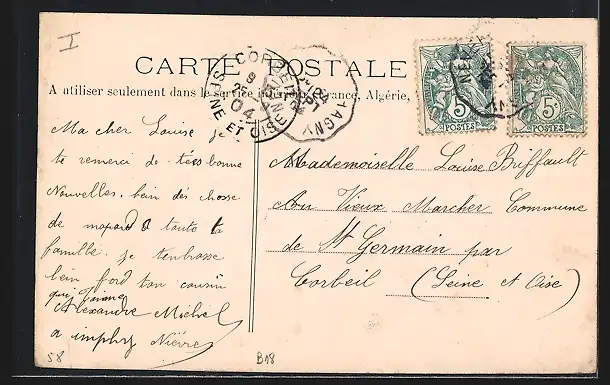 I
CARTE POSTALE
A utiliser seulement dans le service intérieur, France, Algérie,
CORBEIL
SEINE ET OISE
04
MAGNY
5c
POSTES
5c
POSTES
Ma cher Louise je
te remerci de tes bonne
Nouvelles. bein dés chosse
de mapard a toute la
famille. je tenbrasse
bein ford ton cousin
qui t'aime
Alexandre Michel
a imphy Nièvre
Mademoiselle Louise Briffault
Au Vieux Marcher Commune
de St Germain par
Corbeil (Seine et Oise)
58
B18